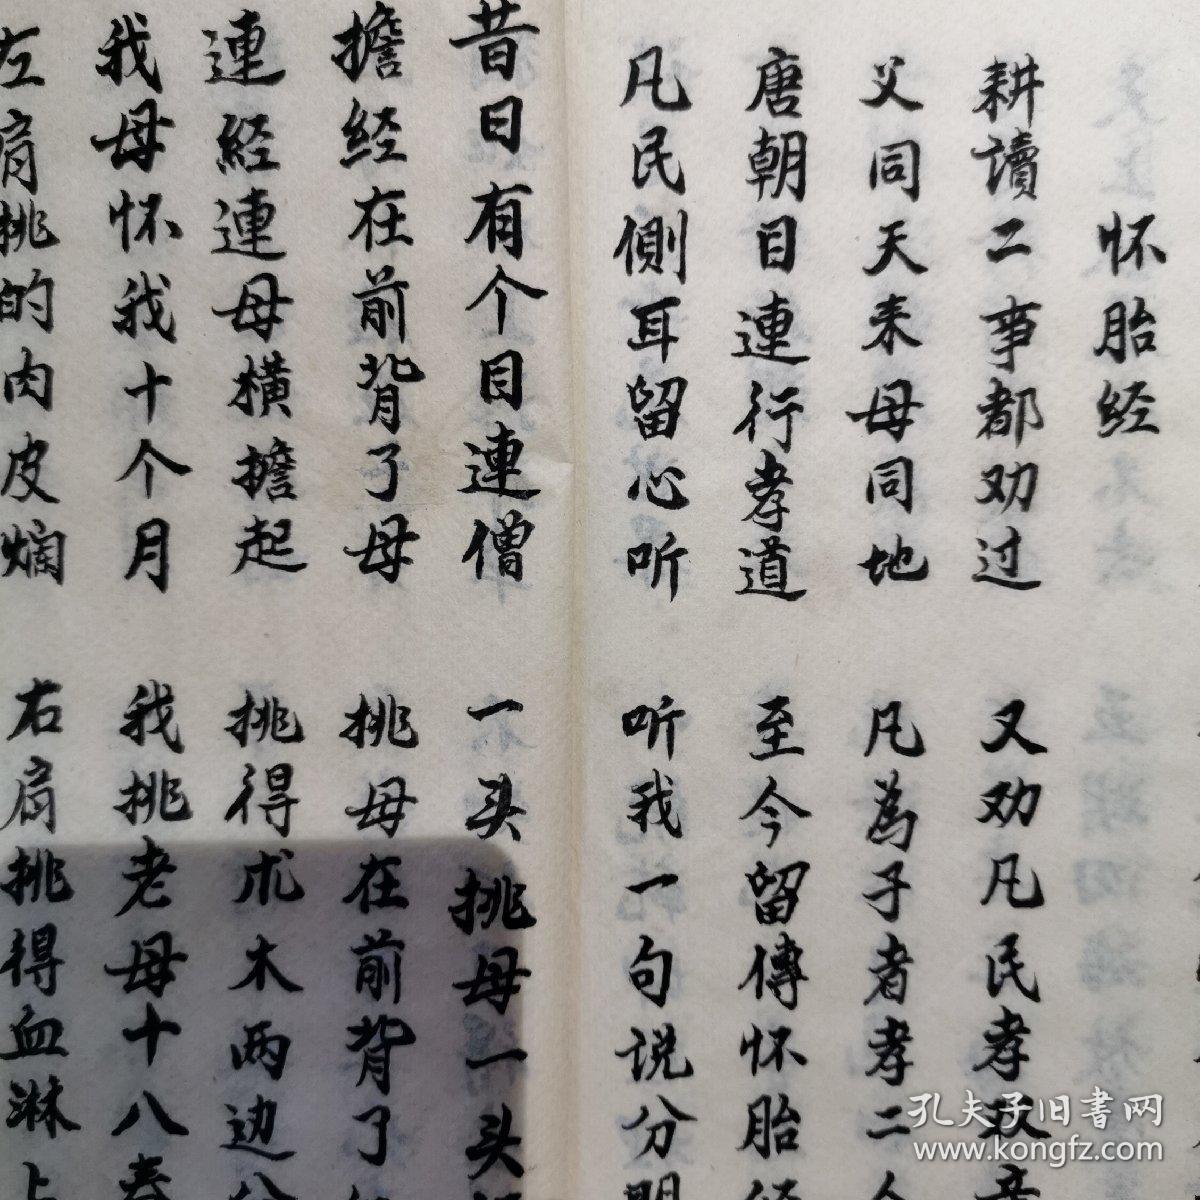 怀胎经
耕讀二事都劝过
又劝凡民孝双
父同天来母同地
凡為子者孝二
唐朝目連行孝道
至今留傳怀胎
凡民側耳留心听
听我一句说分明
昔日有个目連僧
一头挑母一头
擔经在前背了母
挑母在前背了
連経連母横擔起
挑得朮木两边分
我母怀我十个月
我挑老母十八春
左肩挑的肉皮爛
右肩挑得血淋
孔夫子旧書网
www.kongfz.com